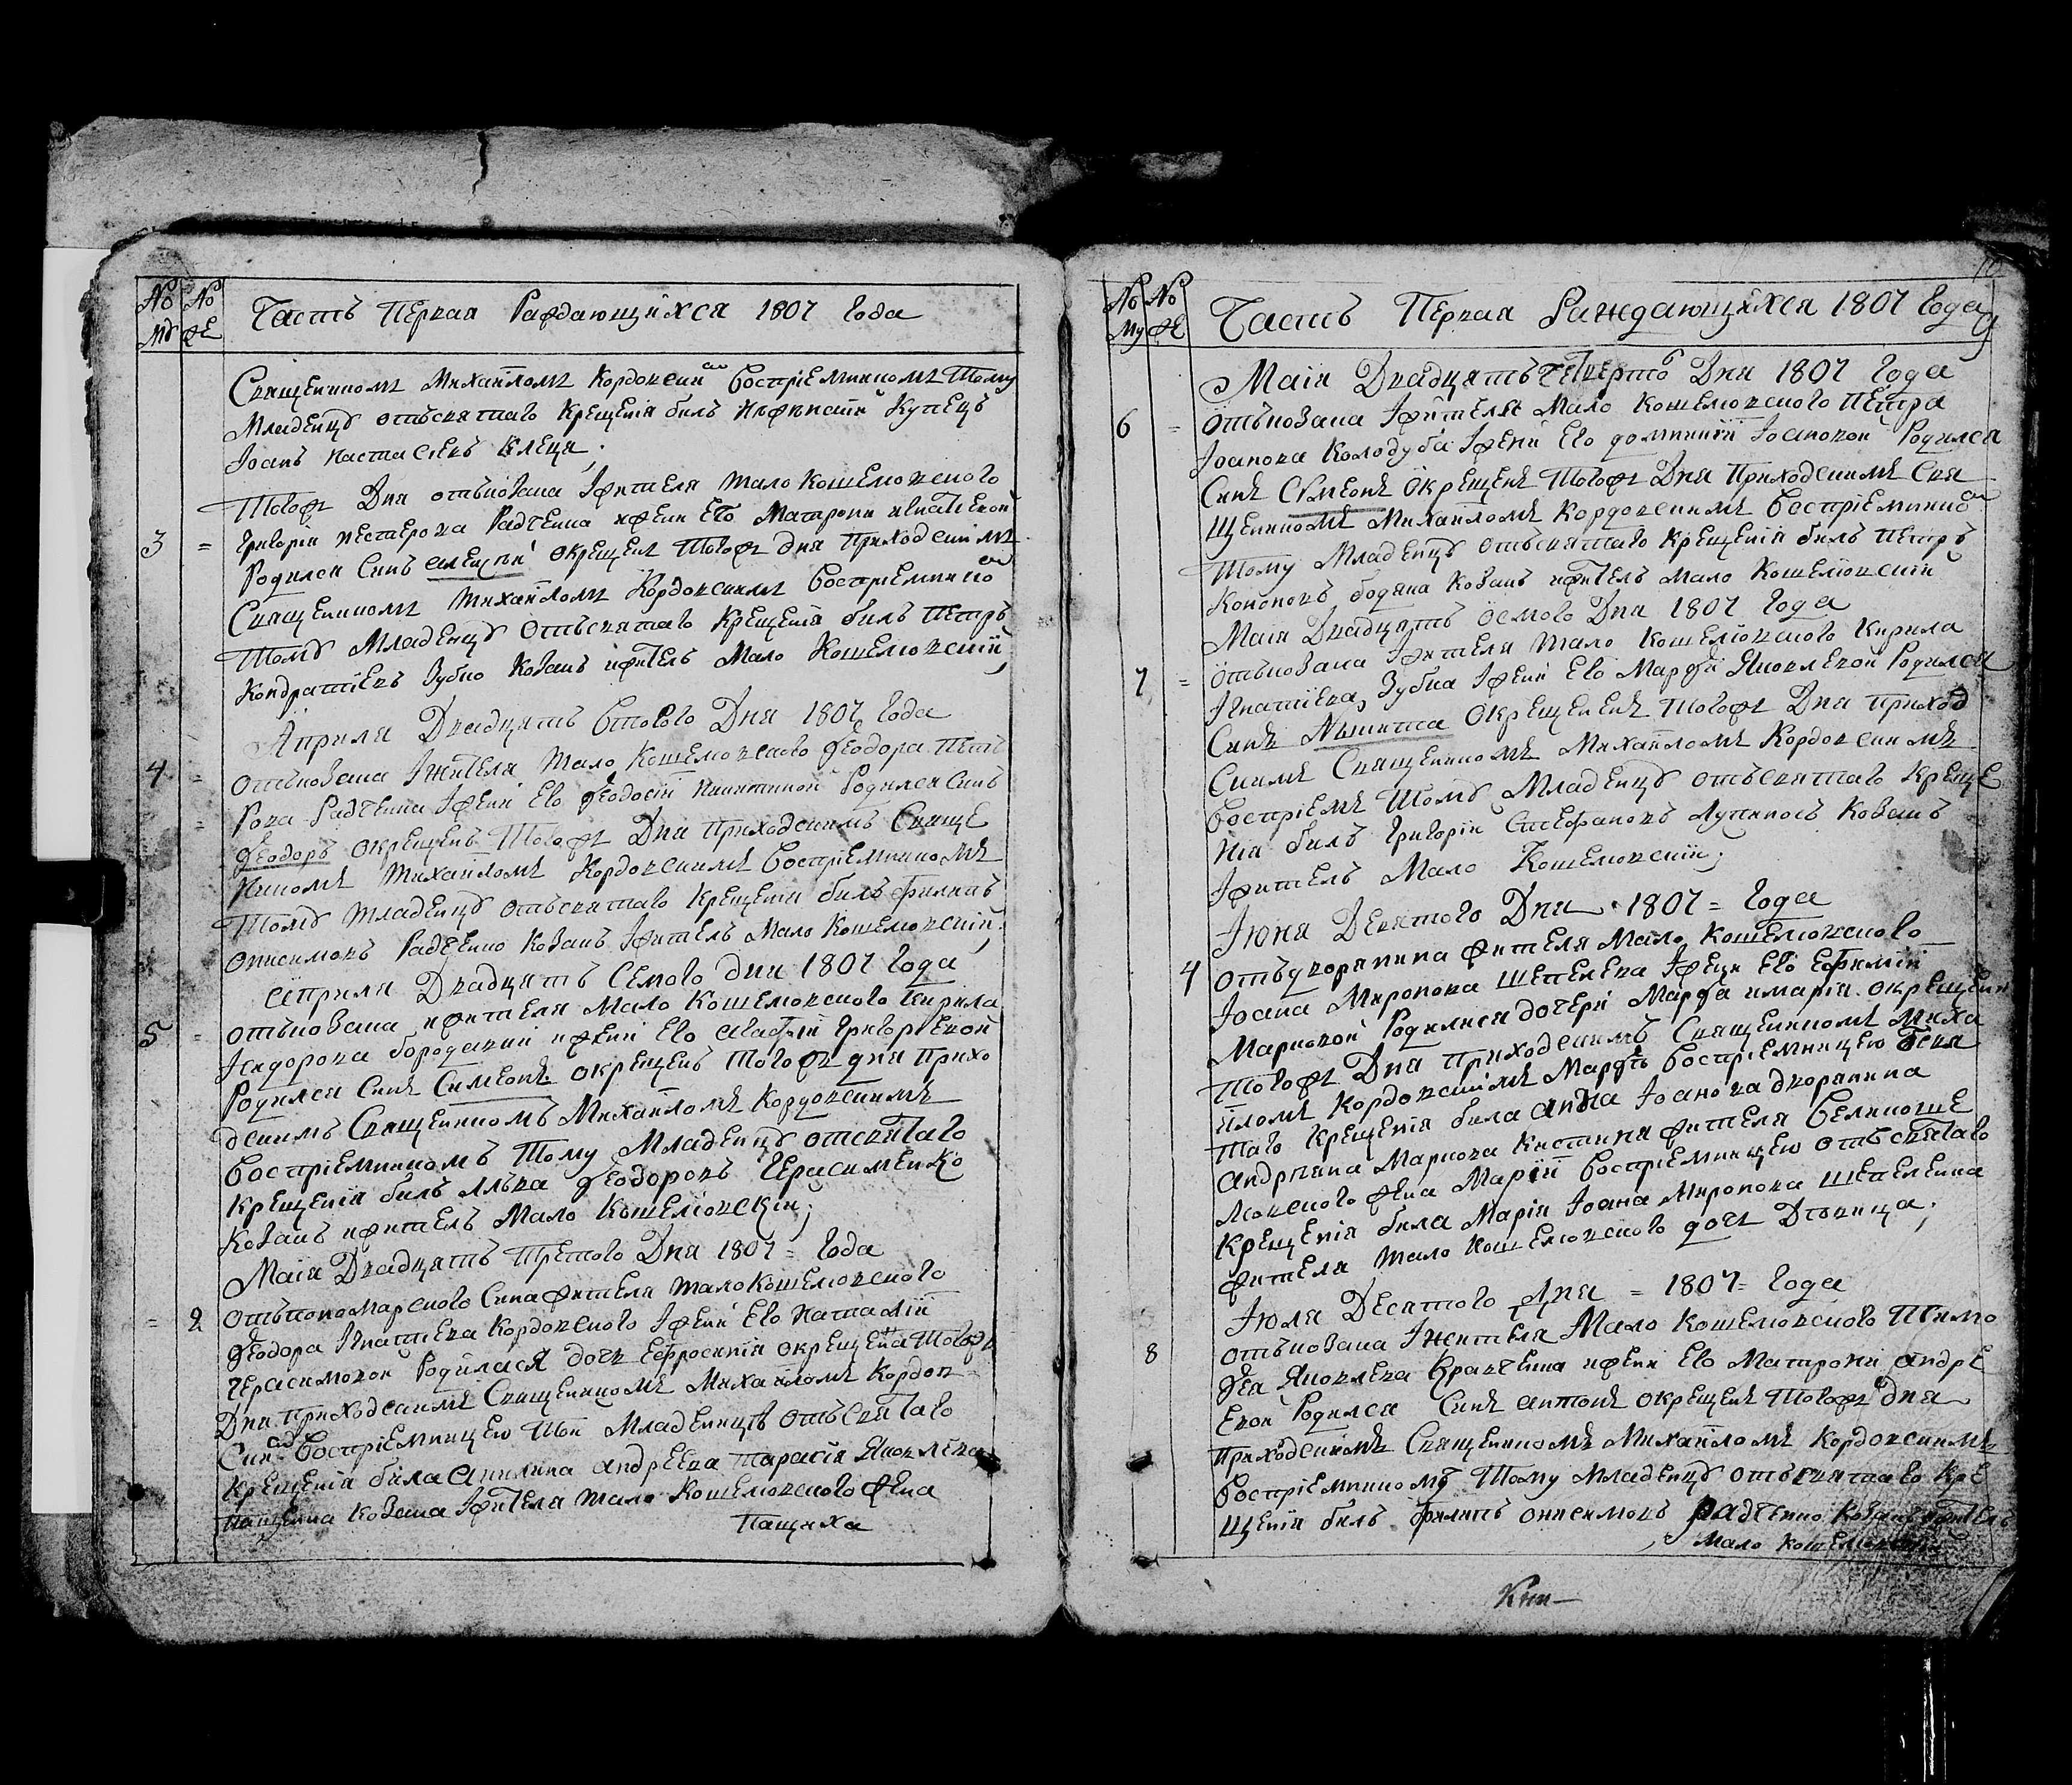 № Му № Же Часть Первая Раждающихся 1807 Года
Священникомъ Михайломъ Кордовскимъ Воспріемникомъ Тому
Младенцу отъ святаго Крещенія билъ Нѣжинскій Купецъ
Іоанъ
Тогожъ Дня отъ козака Ижителя Мало Кошелювского
3 = Григорія Нестерова Радченка ижени Его Матрони Игнатіевой
Родился Синъ Алещій окрещенъ Тогожъ дня Приходскимъ
Священникомъ Михайломъ Кордовскимъ Воспріемникомъ
Тому Младенцу Отъ святаго Крещенія билъ Петръ
Кондратіевъ Зубко Козакъ ижитель Мало Кошелювскій
Априля Двадцять Втоого Дня 1807 Года
4 = отъ козака Ижителя Мало Кошелювского Ѳеодора Пет
рова Радченка Ижени Его Ѳеодосіи Никитиной Родился Синъ
Ѳеодоръ окрещенъ Тогожъ Дня Приходскимъ Свяще
никомъ Михайломъ Кордовскимъ Воспріемникомъ
Тому Младенцу отъ святаго Крещенія билъ Филипъ
Онисимовъ Радченко Козакъ Ижитель Мало Кошелювскій
Априля Двадцять Семого дня 1807 Года
5 = отъ козака ижителя Мало Кошелювского Кирила
Исидорова Бородавки ижени Его Агафіи Григоріевой
Родился Синъ Симеонъ окрещенъ Тогожъ дня Прихо
дскимъ Священникомъ Михайломъ Кордовскимъ
Воспріемникомъ Тому Младенцу от святаго
Крещенія билъ Лявка Ѳеодоровъ Герасименко
Козакъ ижитель Мало Кошеліовскій;
Маія Двадцять Третого Дня 1807 = Года
= 2 отъ пономарского Сина Жителя Мало Кошелювского
Ѳеодора Игнатіева Кордовского Ижени Его Наталіи
Герасимовой Родилася дочь Ефросинія окрещена Тогожъ
Дня Приходскимъ Священникомъ Михайломъ Кордов
Ским Воспріемницею Той Младеницѣ отъ Святаго
Крещенія била Акилина Андреева Тарасія Яковлева
Пащенка Козака Ижителя Мало Кошелювского Жена
Пащиха
№ Му № Же Часть Первая Раждающихся 1807 Года 9
Маія Двадцять Четверто Дня 1807 Года
6 = отъ козака Ижителя Мало Кошелювского Петра
Іоанова Колодуба Ижени Его Домникіи Іоановой Родился
Синъ Сѵмеонъ окрещенъ Тогожъ Дня Приходскимъ Свя
щенникомъ Михайломъ Кордовскимъ Воспріемникомъ
Тому Младенцу отъ святаго Крещенія билъ Петръ
Кононовъ Бодяка Козакъ ижитель Мало Кошеліовскій
Маія Двадцять Осмого Дня 1807 Года
7 = отъ козака Ижителя Мало Кошеліовского Кирила
Игнатіева Зубка Ижени Его Марфи Яковлевой Родился
Синъ Никита Окрещенъ Тогожъ Дня Приход
Скимъ Священникомъ Михайломъ Кордовскимъ
Воспріемъ Тому Младенцу отъ святаго Креще
нія билъ Григорій Стефановъ Козакъ
Ижитель Мало Кошелювскій;
Іюня Девятого Дня 1807 = Года
4 отъ дворянина жителя Мало Кошелювского
Іоана Миронова Шепелева Ижени Его Ефиміи
Марковой Родилися дочери Марфа и Марія окрещени
Тогожъ Дня Приходскимъ Священникомъ Миха
йломъ Кордовскимъ Марфѣ Воспріемницею от Свя
таго Крещенія била Анна Іоанова дворянина
Андріяна Маркова жителя
жена Маріи Воспріемницею отъ Святаго
Крещенія била Марія Іоана Миронова Шепелева
жителя Мало Кошелювского дочь Дѣвица;
Іюля Десятого Дня = 1807 = Года
8 отъ козака Ижителя Мало Кошелювского Тимо
ѳея Яковлева Кравченка ижени Его Матрони Андре
евой Родился Синъ Антонъ окрещенъ Тогожъ Дня
Приходскимъ Священникомъ Михайломъ Кордовскимъ
Воспріемникомъ Тому Младенцу отъ святаго Кре
щенія билъ Филипъ Онисимовъ Радченко Козакъ ижитель
Мало Кошелювскій